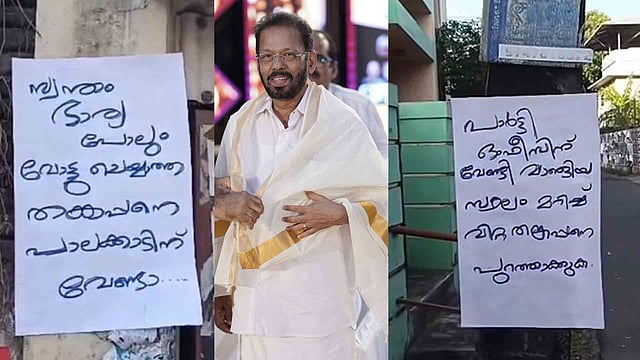 സ്വന്തം
ഭാര്യ
പോലും
വോട്ടു ചെയ്യാത്ത
തങ്കപ്പനെ
പാലക്കാടിന്
വേണ്ടാ....
പാർട്ടി
ഓഫീസിന്
വേണ്ടി വാങ്ങിയ
സ്ഥലം മറിച്ച്
വിറ്റ തങ്കപ്പനെ
പുറത്താക്കുക.